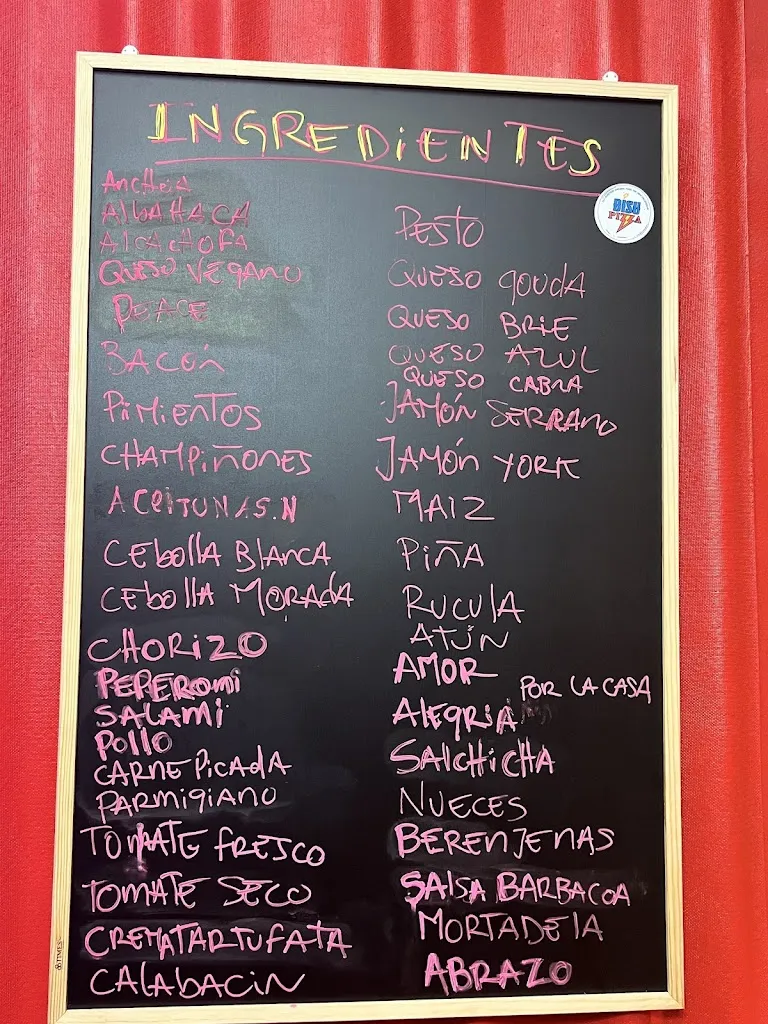 INGREDIENTES
DISU
PIZZA
AnchoA
AlbAHACA
AlCACHOFA
QUESO VEGANO
PEACE
BACÓn
PiMiEnTOS
CHAMPiÑONES
ACEITUNAS.N
CEbollA BlAnCA
CEbollA MORAdA
CHORiZO
PEPEROmi
SALAMi
Pollo
CARNE PiCAdA
PARMiGiANO
TOMATE FRESCO
TOMATE SECO
CREMATARTUFATA
CALAbACiN
PESTO
QUESO gOUdA
QUESO BRiE
QUESO AZUL
QUESO CABRA
JAMÓn SERRANO
JAMÓn YORK
MAIZ
PiÑA
RUCUlA
ATÚN
AMOR
POR LA CASA
AlEgRiA
SAlCHiCHA
NUECES
BERENJENAS
SAlSA BARBACOA
MORTADElA
ABRAZO
TIMES